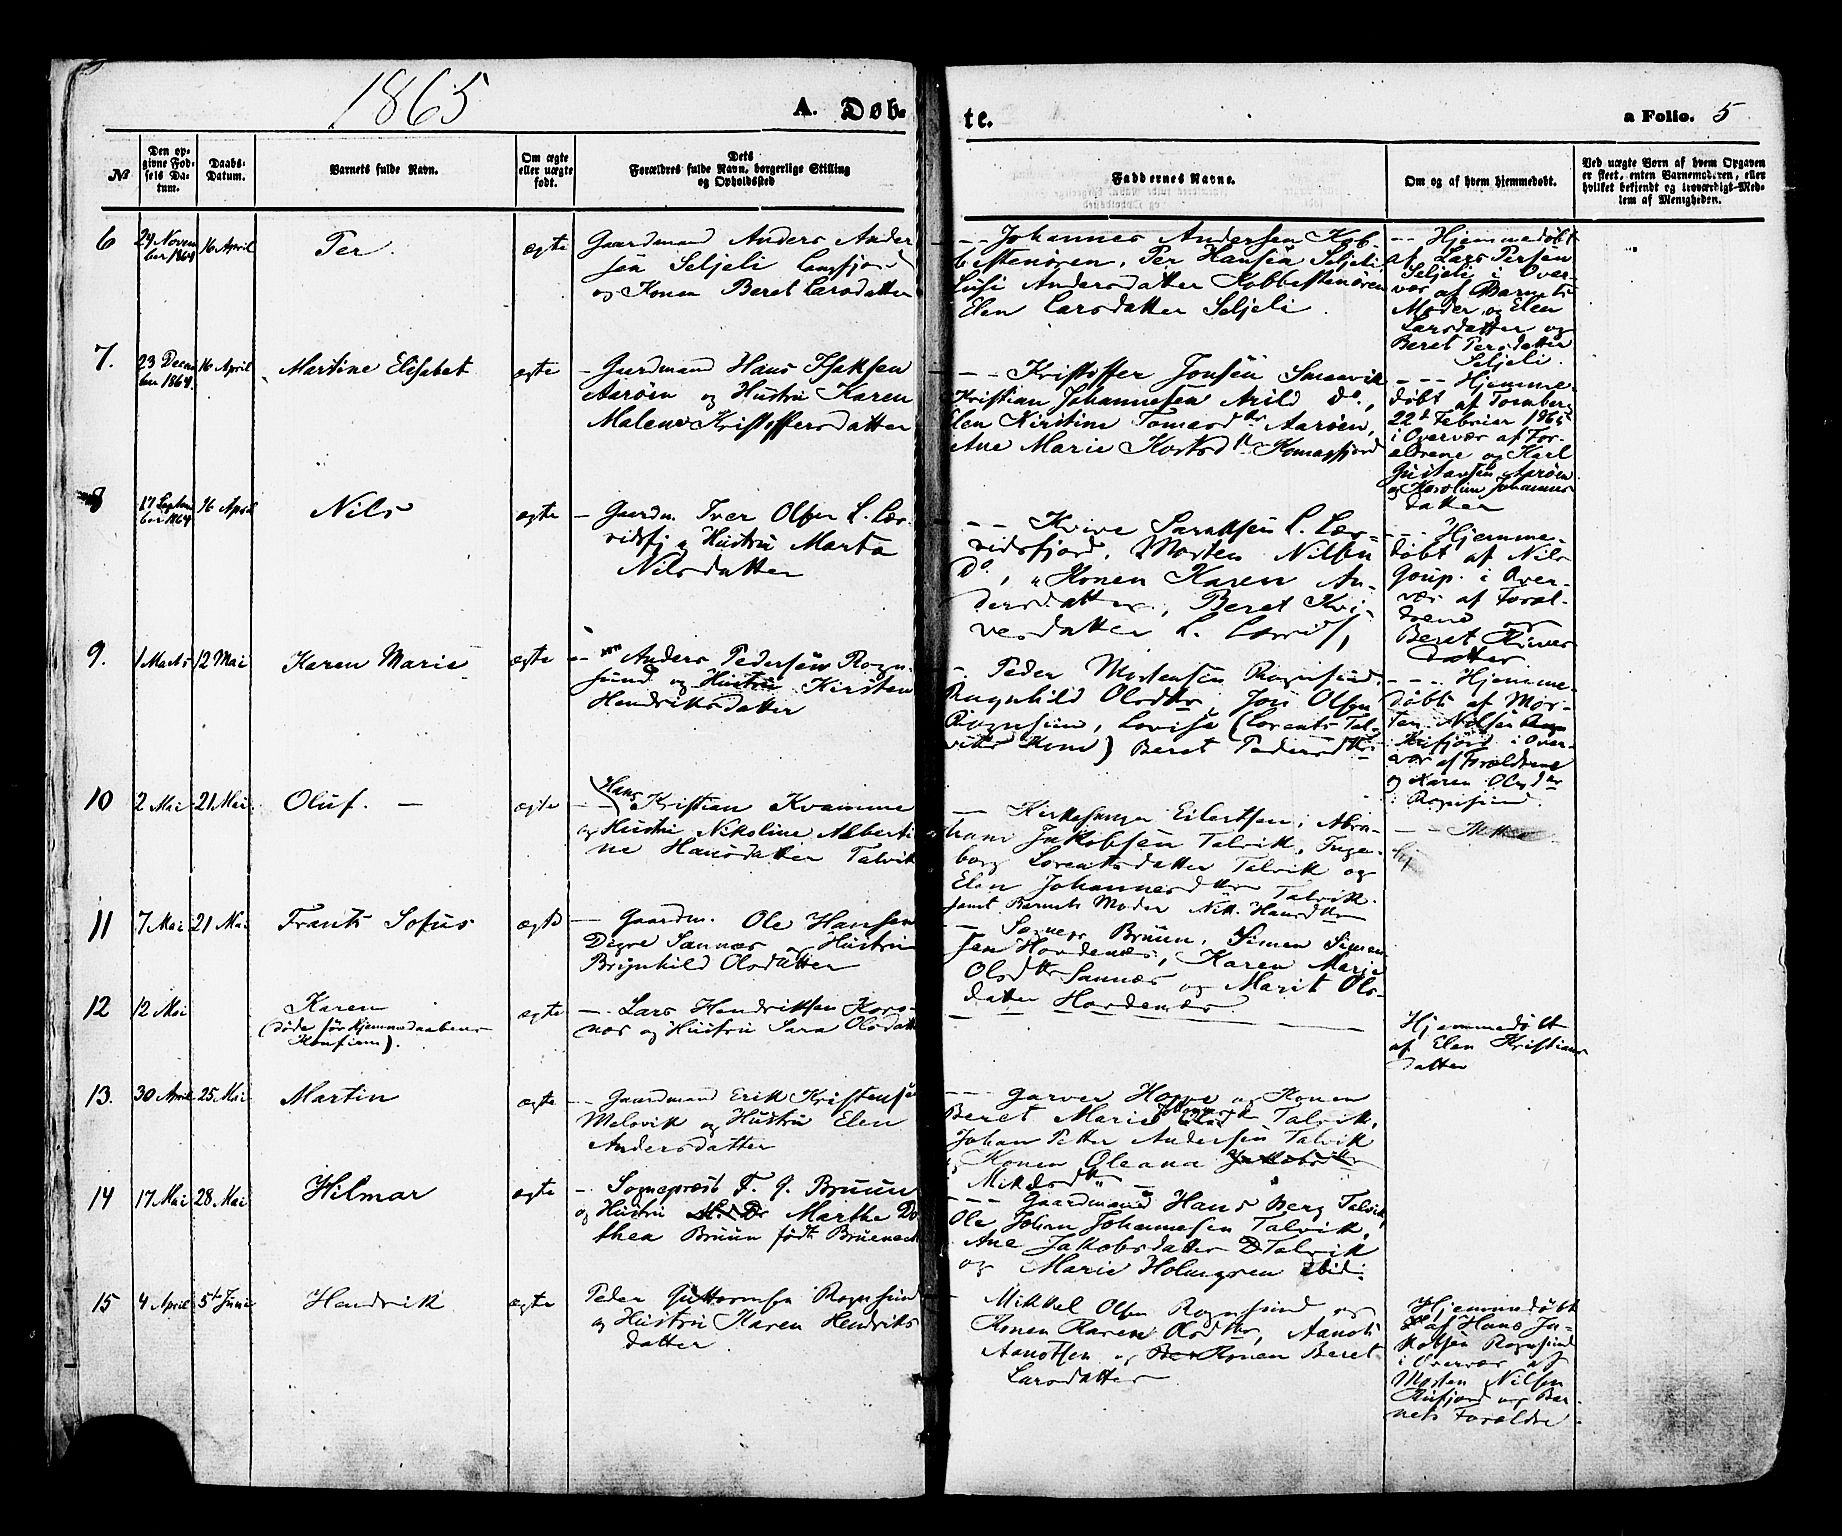 1865
A. Døb-
te.
a Folio. 5
№
Den op-
givne Fød-
sels Da-
tum.
Daabs-
Datum.
Barnets fulde Navn.
Om ægte
eller uægte
født.
Dets
Forældres fulde Navn, borgerlige Stilling
og Opholdssted
Faddernes Navne.
Om og af hvem hjemmedøbt.
Ved uægte Børn af hvem Opgaven
er skeet, enten Barnemoderen, eller
hvilket bekjendt og troværdigt Med-
lem af Menigheden.
6
24 Novem
ber 1864
16 April
Per.
ægte
Gaardmand Anders Ander
sen Seljeli Langfjord
og Konen Beret Larsdatter
-- Johannes Andersen Kob-
bestenören, Per Hansen Seljeli
Lusi Andersdatter Kobbestenören
Elen Larsdatter Seljeli.
-- Hjemmedøbt
af Lars Persen
Seljeli i Over-
vær af Barnets
Moder og Elen
Larsdatter og
Beret Persdatter
Seljeli.
7.
23 Decem
ber 1864
16 April
Martine Elisabet
ægte
- Gaardmand Hans Isaksen
Aaröen og Hustru Karen
Malene Kristoffersdatter
-- Kristoffer Jonsen Smaavik
Kristian Johannesen Arild do.,
Elen Kirstine Tomasdtr Aaröen,
Ane Marie Komagfjord
--- Hjemme-
døbt af Tornberg
22d Februar 1865
i Overvær af For-
ældrene og Karl
Gustavsen Aaröen
og Karoline Johannes
datter
8
17 Septem
ber 1864
16 April
Nils
ægte
- Gaardm. Iver Olsen L. Ler-
vidsfj og Hustru Marta
Nilsdatter
-- Kvive Saraksen L. Ler-
vidsfjord, Morten Nilsen
Do., " Konen Karen An-
dersdatter, Beret Kvi-
vesdatter L.
-- Hjemme-
døbt af Nils
i Over-
vær af Foræl-
drene og
Beret Kvives
datter
9.
1 Marts
12 Mai
Karen Marie
ægte
- Anders Pedersen Rogn-
sund og Hustru Kirsten
Hendriksdatter
- Peder Mortensen Rognsund.
Ragnhild Olsdtr, Jon Olsen
Rognsund, Lovisa (Lorents Tal-
viks Kone) Beret Pedersdtr
--- Hjemme-
døbt af Mor-
ten Nilsen
Rifjord i Over-
vær af Forældrene
og Karen Olsdtr
i Rognsund.
10
2 Mai
21 Mai
Oluf. -
ægte
Hans
-- Kristian Kvamme
og Hustru Nikoline Alberti
ne Hansdatter Talvik
-- Kirkesanger Eilertsen, Abra-
ham Jakobsen Talvik, Inge-
borg Lorentsdatter Talvik og
Elen Johannesdtr Talvik.
samt Barnets Moder Nik. Hansdtr
11
7 Mai
21 Mai
Frants Sofus
ægte
- Gaardm. Ole Hansen
Digre Sannæs og Hustru
Brynhild Olsdatter
- Sognepr Bruun, Simen Simen
sen Hordenæs, Karen Marie
Olsdtr Sannæs og Marit Ols-
datter Hordenæs.
12
12 Mai
Karen
(døde før Hjemmedaabens
Konfirm).
ægte
-- Lars Hendriksen Kors-
næs og Hustru Sara Olsdatter
Hjemmedøbt
af Elen Kristians
datter
13.
30 April
25 Mai
Martin
ægte
-- Gaardmand Erik Kristensen
Melsvik og Hustru Elen
Andersdatter
-- Garver Hoppe og Konen
Beret Marie Talvik,
Johan Petter Andersen Talvik
Konen Oleana
Mikkelsdtr
14
17 Mai
28 Mai
Hilmar
ægte
-- Sognepræst F. G. Bruun
og Hustru Marthe Do
thea Bruun født Bruenech
--- Gaardmand Hans Berg Talvik,
Ole Johan Johannesen Talvik,
Ane Jakobsdatter Talvik
og Marie Holmgren ibid.
15
4 April
5te Juni
Hendrik
ægte
Peder Guttormsen Rognsund
og Hustru Karen Hendriks
datter
- Mikkel Olsen Rognsund og
Konen Karen Olsdtr, Aanot
Aanotsen og Konen Beret
Larsdatter
Hjemmedøbt
af Hans Ja-
kobsen Rognsund
i Overvær af
Morten Nilsen
Rifjord og Bar-
nets Forældre